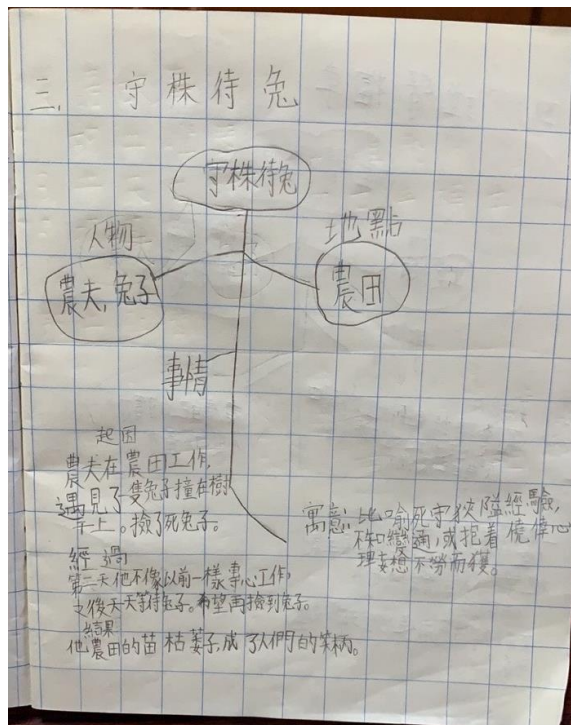 三、守株待兔
守株待兔
人物
地點
農夫,兔子
農田
事情
起因
農夫在農田工作,
遇見了隻兔子撞在樹
上。撿了死兔子。
經過
第二天他不像以前一樣專心工作,
之後天天等待兔子。希望再撿到兔子。
結果
他農田的苗枯萎了,成了人們的笑柄。
寓意 比喻死守狹隘經驗,
不知變通,或抱着僥偉心
理妄想不勞而獲。